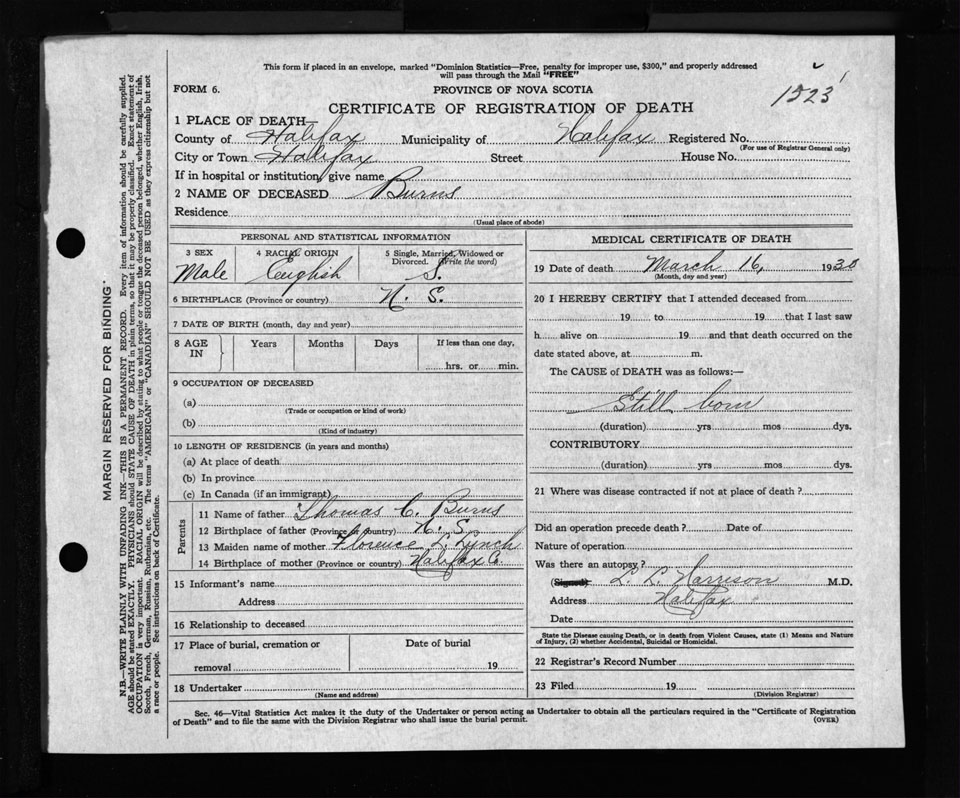 This form if placed in an envelope, marked "Dominion Statistics—Free, penalty for improper use, $300," and properly addressed
will pass through the Mail "FREE"
FORM 6.
PROVINCE OF NOVA SCOTIA
1523
CERTIFICATE OF REGISTRATION OF DEATH
1 PLACE OF DEATH
County of Halifax Municipality of Halifax Registered No.
(For use of Registrar General only)
City or Town Halifax Street House No.
If in hospital or institution, give name
2 NAME OF DECEASED Burns
Residence
(Usual place of abode)
PERSONAL AND STATISTICAL INFORMATION
3 SEX 4 RACIAL ORIGIN 5 Single, Married, Widowed or
Divorced. (Write the word)
Male English S.
6 BIRTHPLACE (Province or country) N. S.
7 DATE OF BIRTH (month, day and year)
8 AGE IN Years Months Days If less than one day,
hrs. or min.
9 OCCUPATION OF DECEASED
(a)
(Trade or occupation or kind of work)
(b)
(Kind of industry)
10 LENGTH OF RESIDENCE (in years and months)
(a) At place of death
(b) In province
(c) In Canada (if an immigrant)
Parents
11 Name of father Thomas C. Burns
12 Birthplace of father (Province or country) N. S.
13 Maiden name of mother Florence L. Lynch
14 Birthplace of mother (Province or country) Halifax Co.
15 Informant's name
Address
16 Relationship to deceased
17 Place of burial, cremation or Date of burial
removal 19
18 Undertaker
(Name and address)
MEDICAL CERTIFICATE OF DEATH
19 Date of death March 16, 1930
(Month, day and year)
20 I HEREBY CERTIFY that I attended deceased from
19 to 19 that I last saw
h alive on 19 and that death occurred on the
date stated above, at m.
The CAUSE of DEATH was as follows:—
Still born
(duration) yrs mos dys.
CONTRIBUTORY
(duration) yrs mos dys.
21 Where was disease contracted if not at place of death?
Did an operation precede death? Date of
Nature of operation
Was there an autopsy?
(Signed) L. L. Harrison M.D.
Address Halifax
Date
State the Disease causing Death, or in death from Violent Causes, state (1) Means and Nature
of Injury, (2) whether Accidental, Suicidal or Homicidal.
22 Registrar's Record Number
23 Filed 19
(Division Registrar)
Sec. 46—Vital Statistics Act makes it the duty of the Undertaker or person acting as Undertaker to obtain all the particulars required in the "Certificate of Registration
of Death" and to file the same with the Division Registrar who shall issue the burial permit.
(OVER)
MARGIN RESERVED FOR BINDING
N.B.—WRITE PLAINLY WITH UNFADING INK—THIS IS A PERMANENT RECORD. Every item of information should be carefully supplied.
AGE should be stated EXACTLY. PHYSICIANS should STATE CAUSE OF DEATH in plain terms, so that it may be properly classified. Exact statement of
OCCUPATION is very important. RACIAL ORIGIN will be described by stating to what people or tongue the deceased person belonged, whether English, Irish,
Scotch, French, German, Russian, Ruthenian, etc. The terms "AMERICAN" or "CANADIAN" SHOULD NOT BE USED as they express citizenship but not
a race or people. See instructions on back of Certificate.